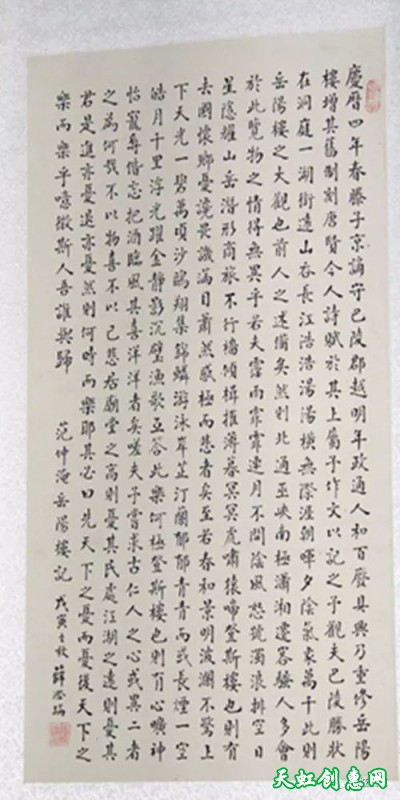 慶曆四年春滕子京謫守巴陵郡越明年政通人和百廢具興乃重修岳陽
樓增其舊制刻唐賢今人詩賦於其上屬予作文以記之予觀夫巴陵勝狀
在洞庭一湖銜遠山吞長江浩浩湯湯橫無際涯朝暉夕陰氣象萬千此則
岳陽樓之大觀也前人之述備矣然則北通巫峽南極瀟湘遷客騷人多會
於此覽物之情得無異乎若夫霪雨霏霏連月不開陰風怒號濁浪排空日
星隱耀山岳潛形商旅不行檣傾楫摧薄暮冥冥虎嘯猿啼登斯樓也則有
去國懷鄉憂讒畏譏滿目蕭然感極而悲者矣至若春和景明波瀾不驚上
下天光一碧萬頃沙鷗翔集錦鱗游泳岸芷汀蘭郁郁青青而或長煙一空
皓月千里浮光躍金靜影沉璧漁歌互答此樂何極登斯樓也則有心曠神
怡寵辱偕忘把酒臨風其喜洋洋者矣嗟夫予嘗求古仁人之心或異二者
之為何哉不以物喜不以己悲居廟堂之高則憂其民處江湖之遠則憂其
君是進亦憂退亦憂然則何時而樂耶其必曰先天下之憂而憂後天下之
樂而樂乎噫微斯人吾誰與歸 范仲淹岳陽樓記 戊寅 秋 薛
天虹创惠网